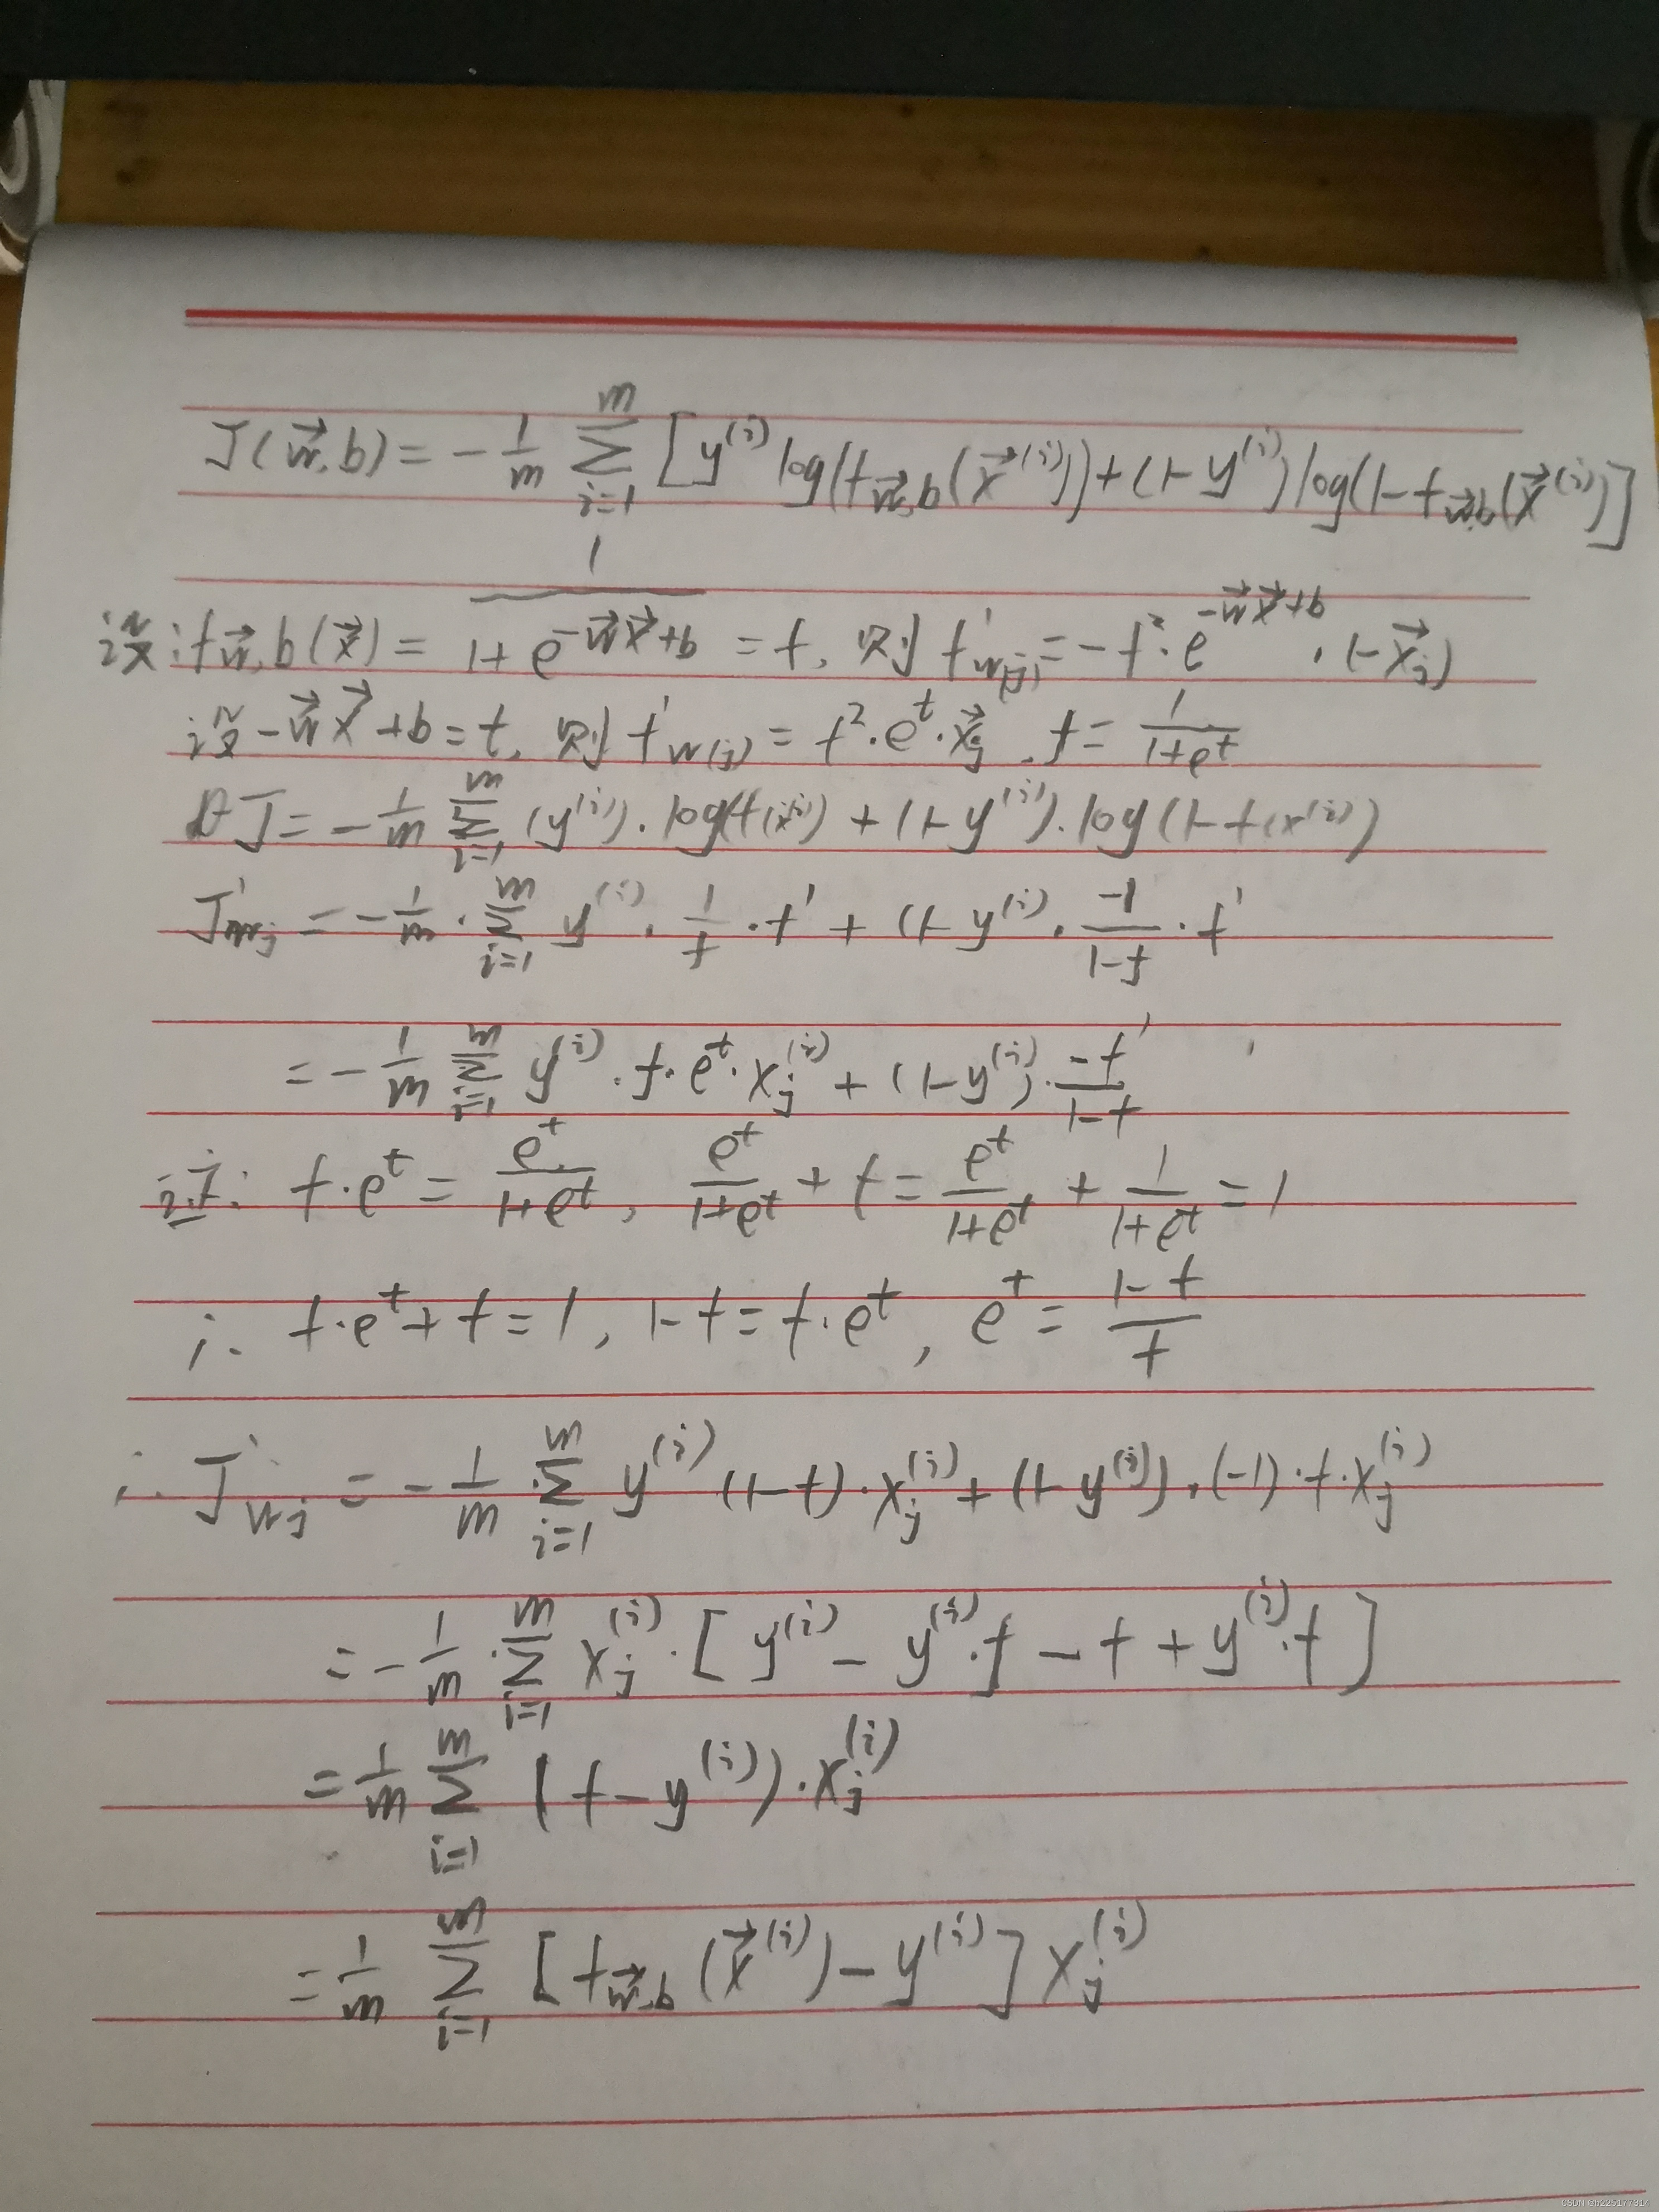 J(w⃗,b) = -1/m ∑_{i=1}^{m} [y^{(i)} log(f_{w⃗,b}(x⃗^{(i)})) + (1-y^{(i)}) log(1-f_{w⃗,b}(x⃗^{(i)})]
设: f_{w⃗,b}(x⃗) = 1/(1+e^{-w⃗x⃗+b}) = f, 则 f'_{w(j)} = -f²·e^{-w⃗x⃗+b}·(-x⃗_j)
设 -w⃗x⃗+b = t, 则 f'_{w(j)} = f²·e^t·x⃗_j, f = 1/(1+e^t)
J = -1/m ∑_{i=1}^{m} (y^{(i)})·log(f(x^{(i)}) + (1-y^{(i)})·log(1-f(x^{(i)})
J'_{wj} = -1/m · ∑_{i=1}^{m} y^{(i)} · 1/f · f' + (1-y^{(i)} · -1/(1-f) · f'
= -1/m ∑_{i=1}^{m} y^{(i)}·f·e^t·x_j^{(i)} + (1-y^{(i)})·-f'/(1-f)
: f·e^t = e^t/(1+e^t), e^t/(1+e^t) + f = e^t/(1+e^t) + 1/(1+e^t) = 1
∴ f·e^t + f = 1, 1-f = f·e^t, e^t = (1-f)/f
∴ J'_{wj} = -1/m · ∑_{i=1}^{m} y^{(i)} (1-f)·x_j^{(i)} + (1-y^{(i)})·(-1)·f·x_j^{(i)}
= -1/m · ∑_{i=1}^{m} x_j^{(i)}·[y^{(i)} - y^{(i)}·f - f + y^{(i)}·f]
= 1/m ∑_{i=1}^{m} (f-y^{(i)})·x_j^{(i)}
= 1/m ∑_{i=1}^{m} [f_{w⃗,b}(x⃗^{(i)}) - y^{(i)}] x_j^{(i)}
CSDN @b225177314